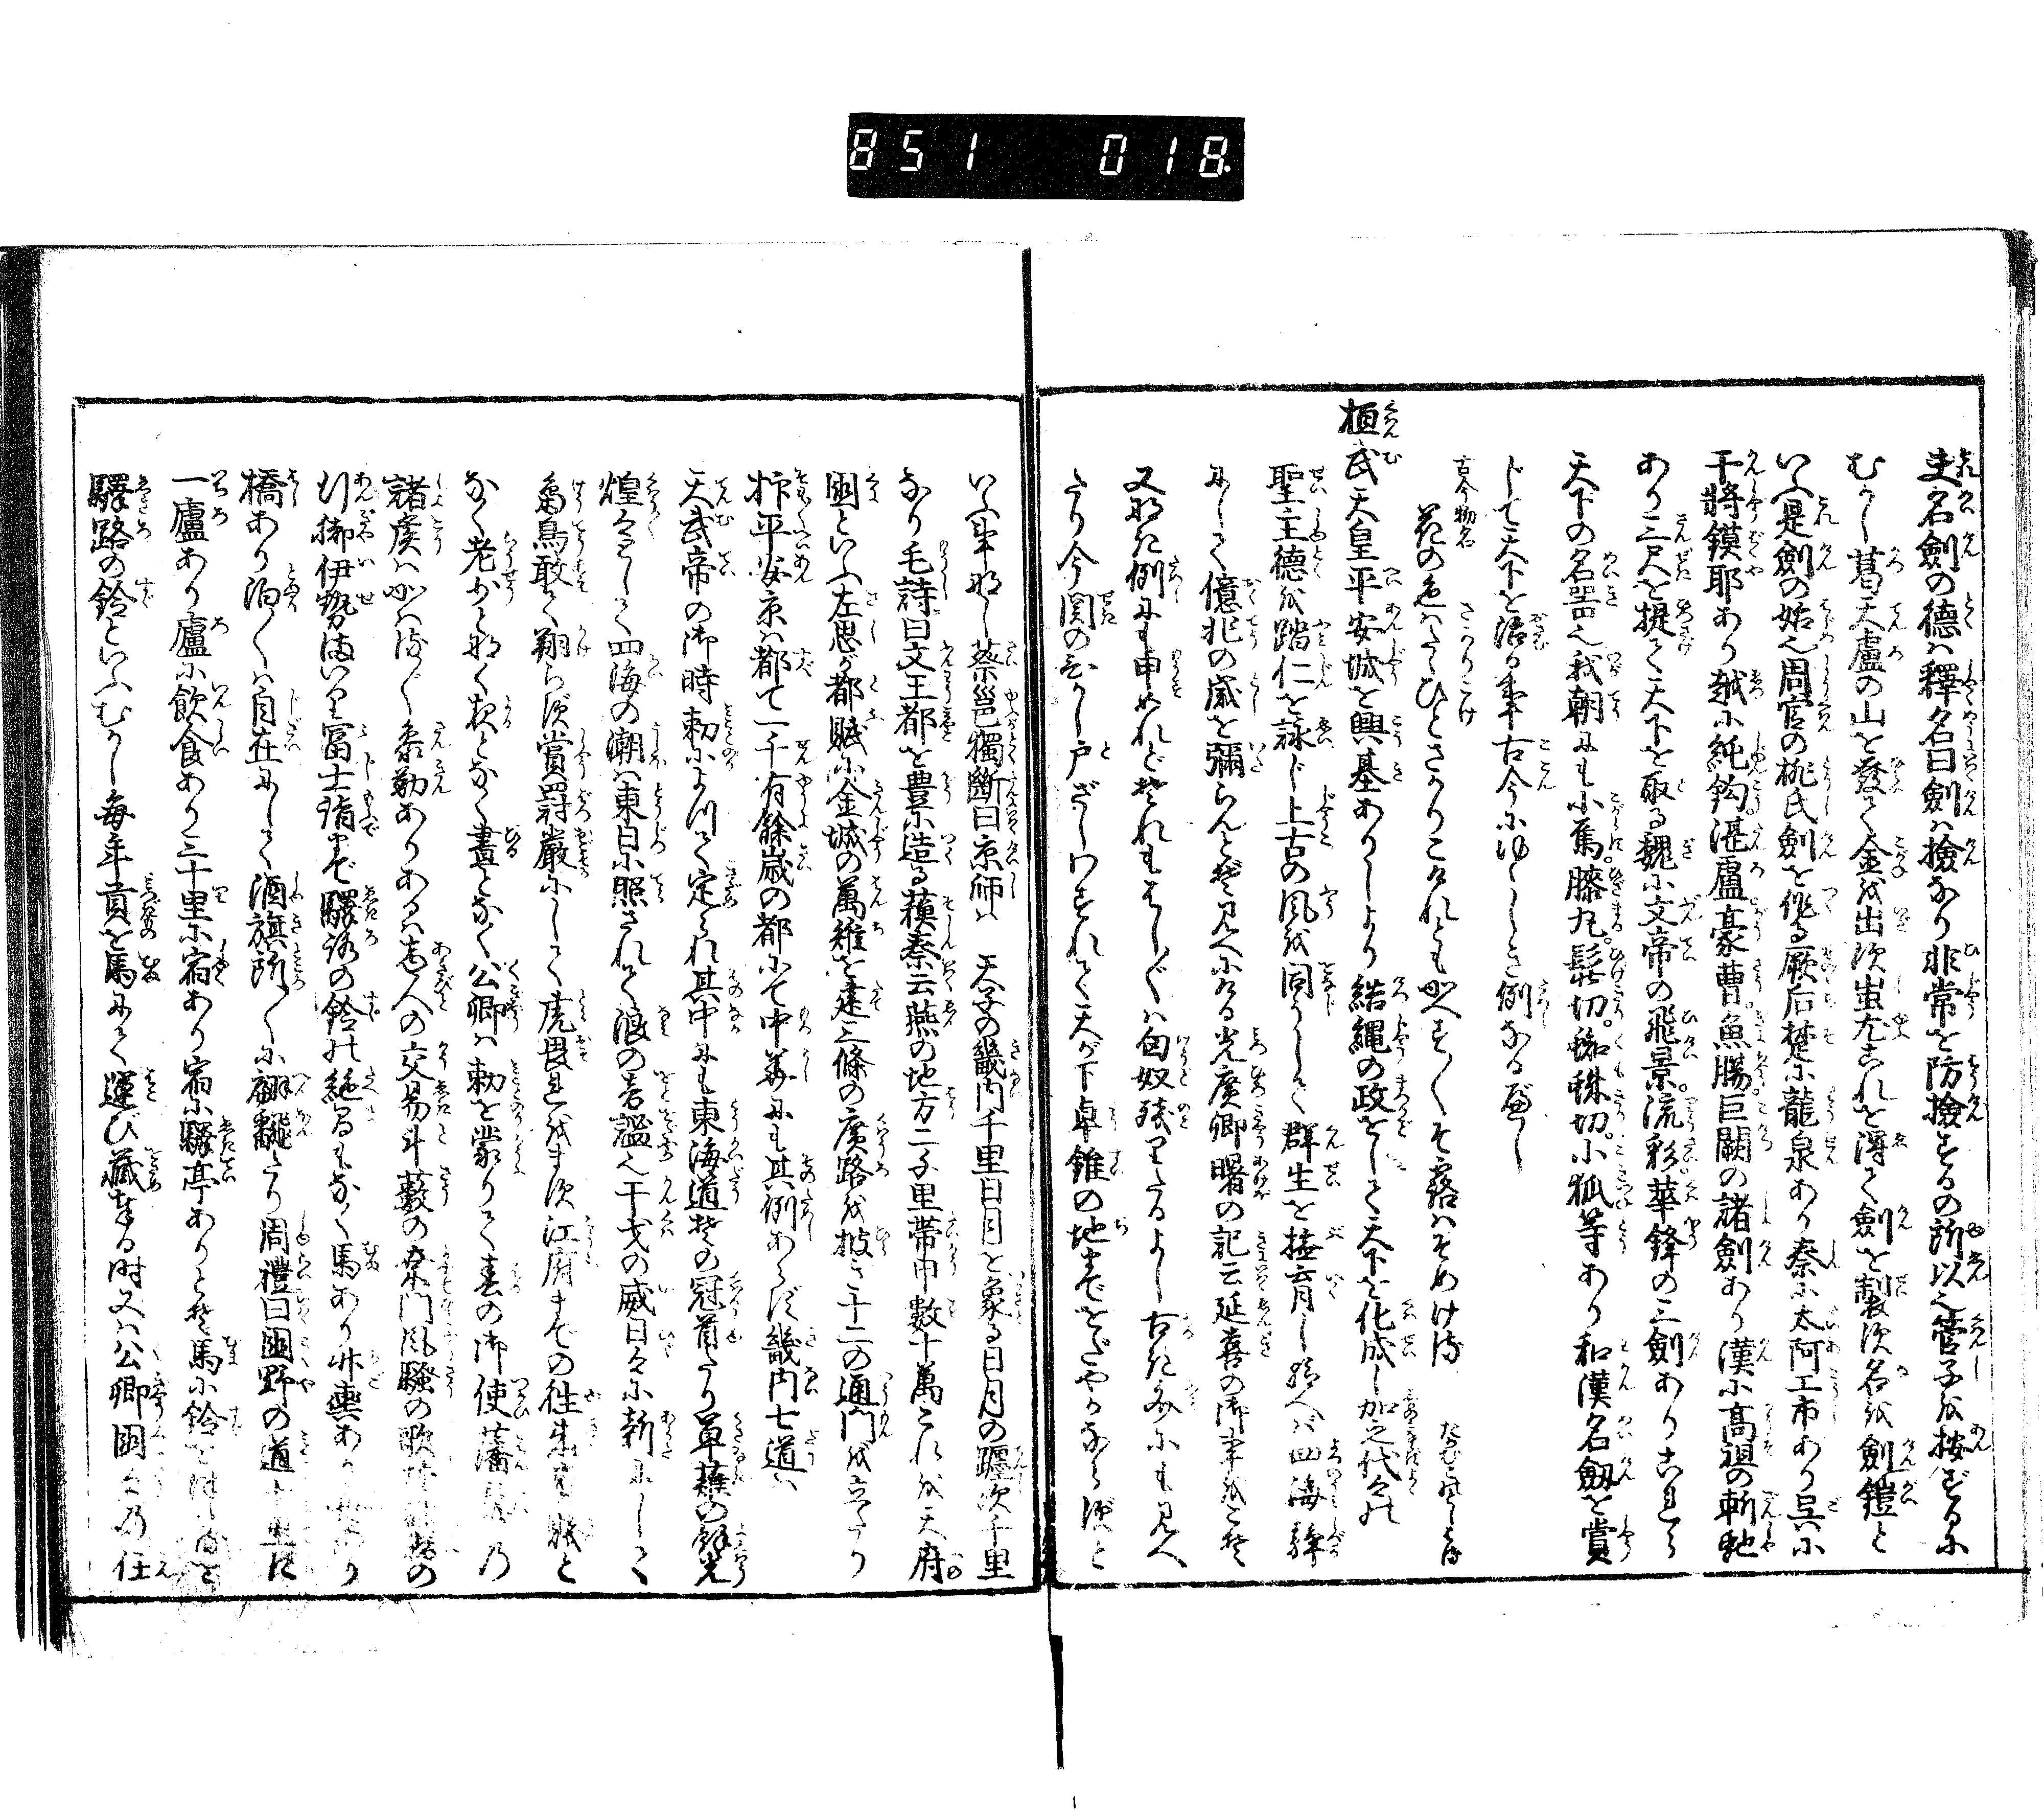 851 018
夫名劍の德ハ釋名曰劍ハ撿なり非常を防撿するの所以也管子を按ずるに
むかし葛天廬の山を發て金を出す蚩尤これを得て劍を製す名を劍鎧と
いふ是劍の始也周官の桃氏劍を作る厥后楚に龍泉あり秦に太阿工市あり呉に
干將鏌耶あり越に純鈎湛盧豪曹魚膓巨闕の諸劍あり漢に高祖の斬虵
あり三尺を提て天下を取る魏に文帝の飛景流彩華鋒の三劍ありこれら
天下の名噐也我朝にも小烏。膝丸。髭切。蜘蛛切。小狐等あり和漢名劔を賞
じて天下を治る事古今にゆゝしき例なるべし
古今物名 さかりこけ
花の色ハたゝひとさかりこけれともかへすく〵そ露ハそめける
桓武天皇平安城を興基ありしより結縄の政をして天下を化成し加之代々の
聖主德を踏仁を詠じ上古の風を同うして群生を撫育し給へバ四海靜
にして億兆の歳を彌らんとぞ見へにける光廣卿曙の記云延喜の御事をこそ
又なき例にも申めれどそれもはしく〵ハ匈奴残りたるよし古き文にも見へ
たり今関のひかし戸ざしわすれて天が下卓錐の地までをだやかならずと
いふ事なし蔡邕獨断曰京師ハ 天子の畿内千里日月を象る日月の躔次千里
なり毛詩曰文王都を豊に造る蘓秦云燕の地方二千里帯甲數十萬これを天府
國といふ左思が都賦に金城の萬雉を建三條の廣路を披き十二の通門を立たり
抑平安京ハ都て一千有餘歳の都にて中華にも其例あらず畿内七道ハ
天武帝の御時勅によつて定られ其中にも東海道其の冠首たり草薙の餘光
煌々として四海の潮ハ東日に照されて浪の音謐也干戈の威日々に新にして
鳥敢て翔らず賞罸嚴にして虎畏れをます江府までの徃来は
なく老少となく夜となく晝となく公卿ハ勅を蒙りて春の御使藩 乃
諸侯ハかハるく〵參勤ありあるハ の交易斗藪の桑門風騒の歌 の
行擲伊勢 富士詣まで驛路の鈴の絶るまもなく馬あり竹輿あり
橋あり泊く〵ハ自在にして酒旗所く〵に翩飜たり周禮曰國野の道十里に
一廬あり廬に飲食あり三十里に宿あり宿に驛亭ありとぞ馬に鈴を附るを
驛路の鈴といふむかし毎年貢を馬にて運び藏むる時又ハ公卿國々乃任